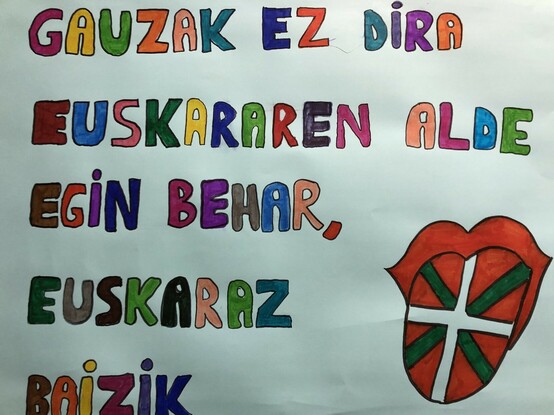 GAUZAK EZ DiRA
EUSKARAREN ALDE
EGiN BEHAR,
EUSKARAZ
BAiZiK